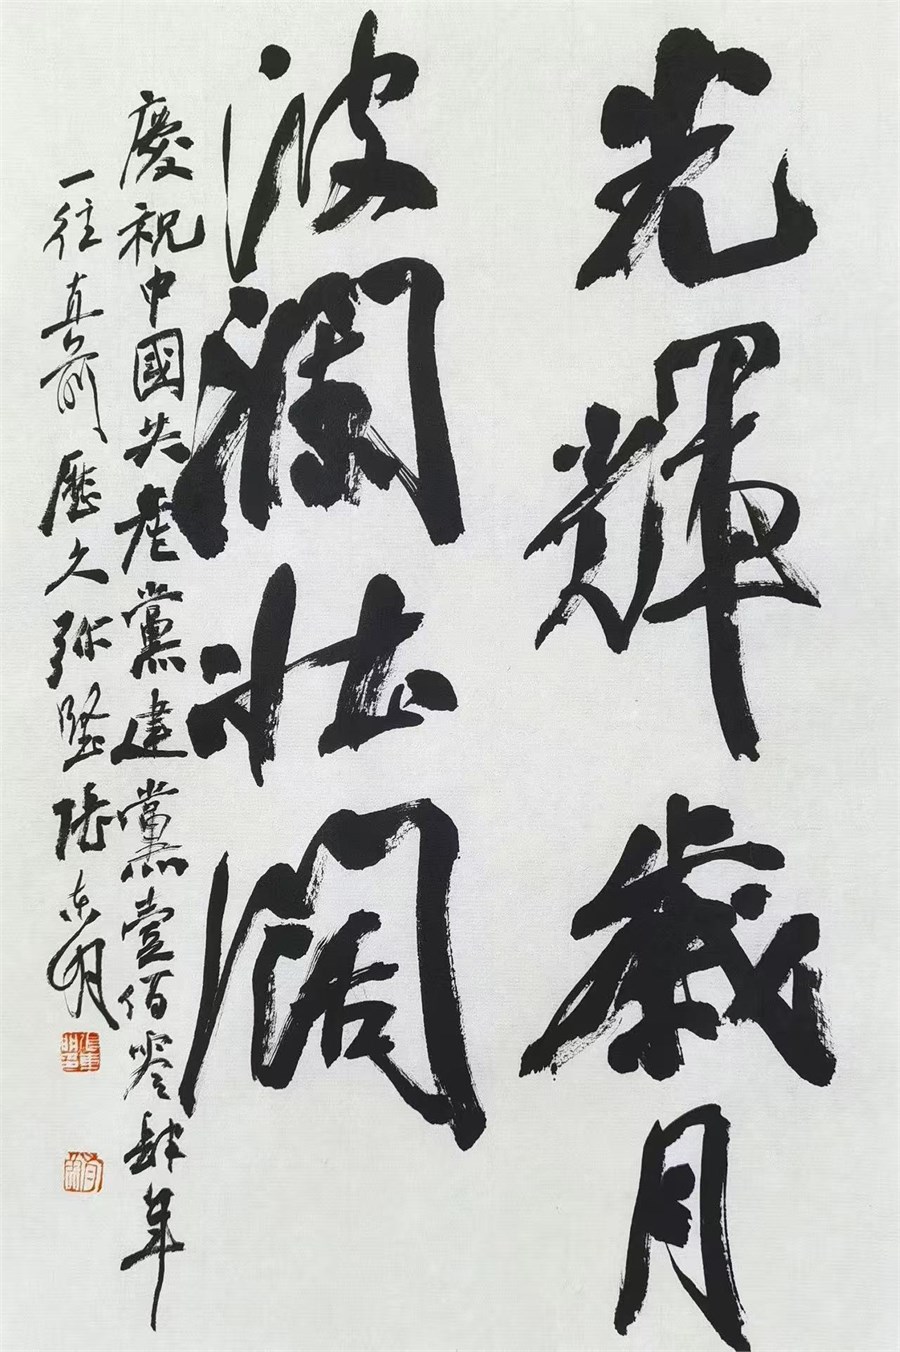 光輝歲月
波瀾壯闊
慶祝中國共產黨建黨壹佰零肆年
一往直前歷久弥堅張东明